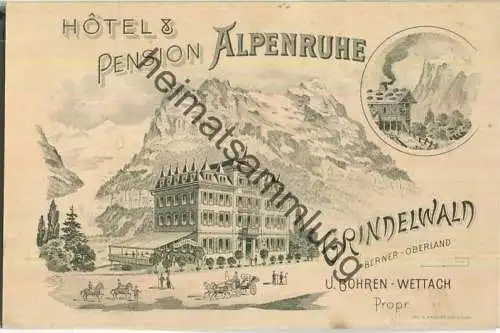 HÔTEL &
PENSION ALPENRUHE
heimatsammlung.de
GRINDELWALD
BERNER-OBERLAND
U. BOHREN-WETTACH
Propr.